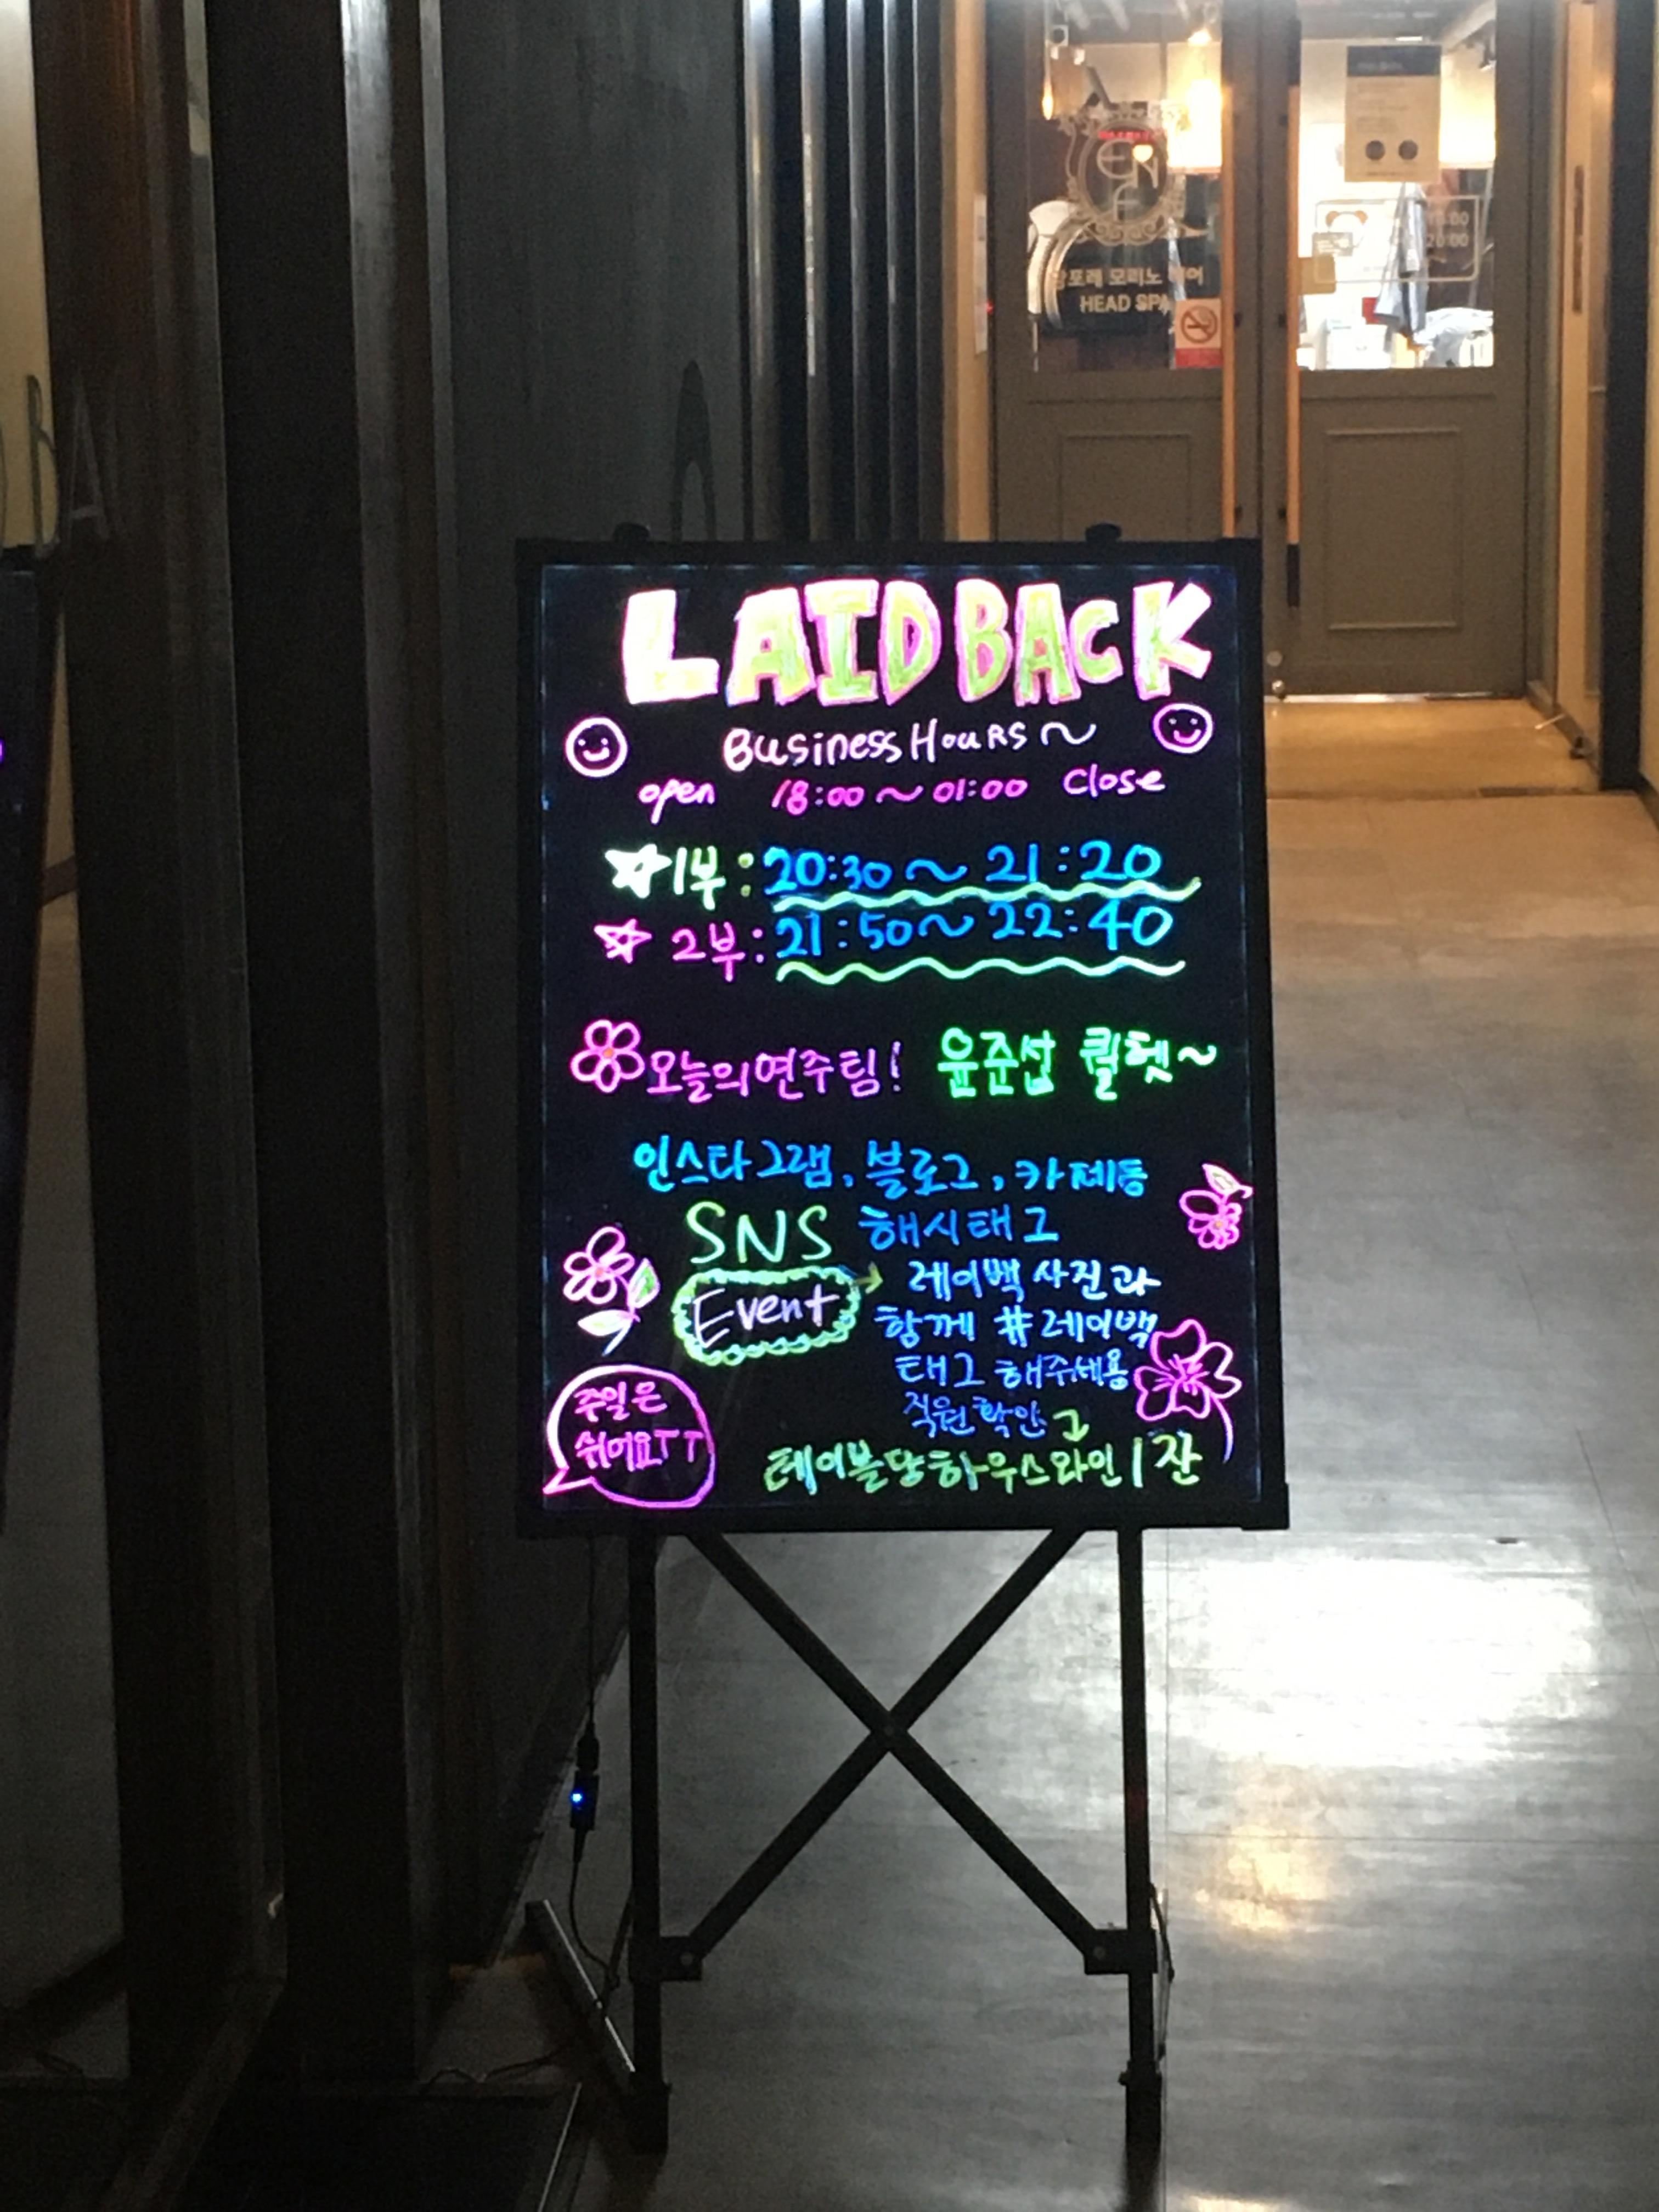 LAID BACK
Business Hours ~
open 18:00 ~ 01:00 Close
1부 : 20:30 ~ 21:20
2부 : 21:50 ~ 22:40
오늘의 연주팀! 윤준섭 퀄텟~
인스타그램, 블로그, 카페등
SNS 해시태그
Event
레이백 사진과
함께 #레이백
태그 해주세용
직원확인
테이블당 하우스와인 1잔
주일은
쉬어요TT
HEAD SPA
20:00